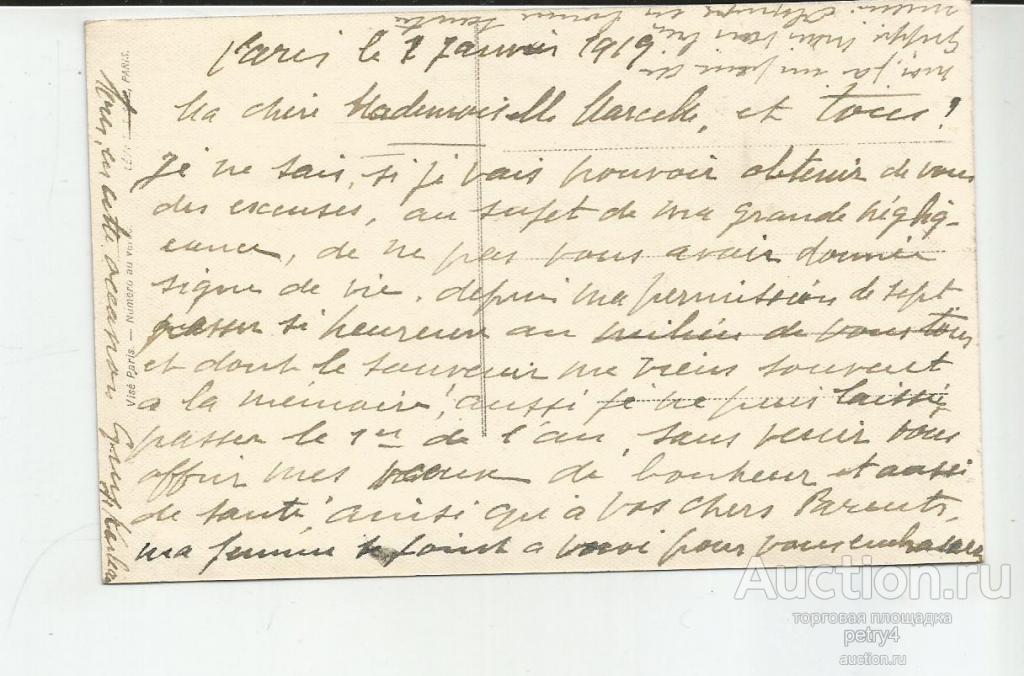 Paris le 1 Janvier 1919
Ma chère Mademoiselle Marcelle, et tous!
Je ne sais, si je vais pouvoir obtenir de vous
des excuses, au sujet de ma grande néglig-
ence, de ne pas vous avoir donnée
signe de vie. depuis ma permission de sept
passer si heureux au milieu de vous tous
et dont le souvenir me viens souvent
a la mémoire, aussi je ne puis laissé
passer le 1er de l'an sans venir vous
offrir mes vœux de bonheur et aussi
de santé, ainsi qu'à vos chers Parents,
ma femme se joint a moi pour vous embrasser
en cette occasion
Visé Paris. — Numéro au verso.
PARIS.
Auction.ru
торговая площадка
petry4
auction.ru